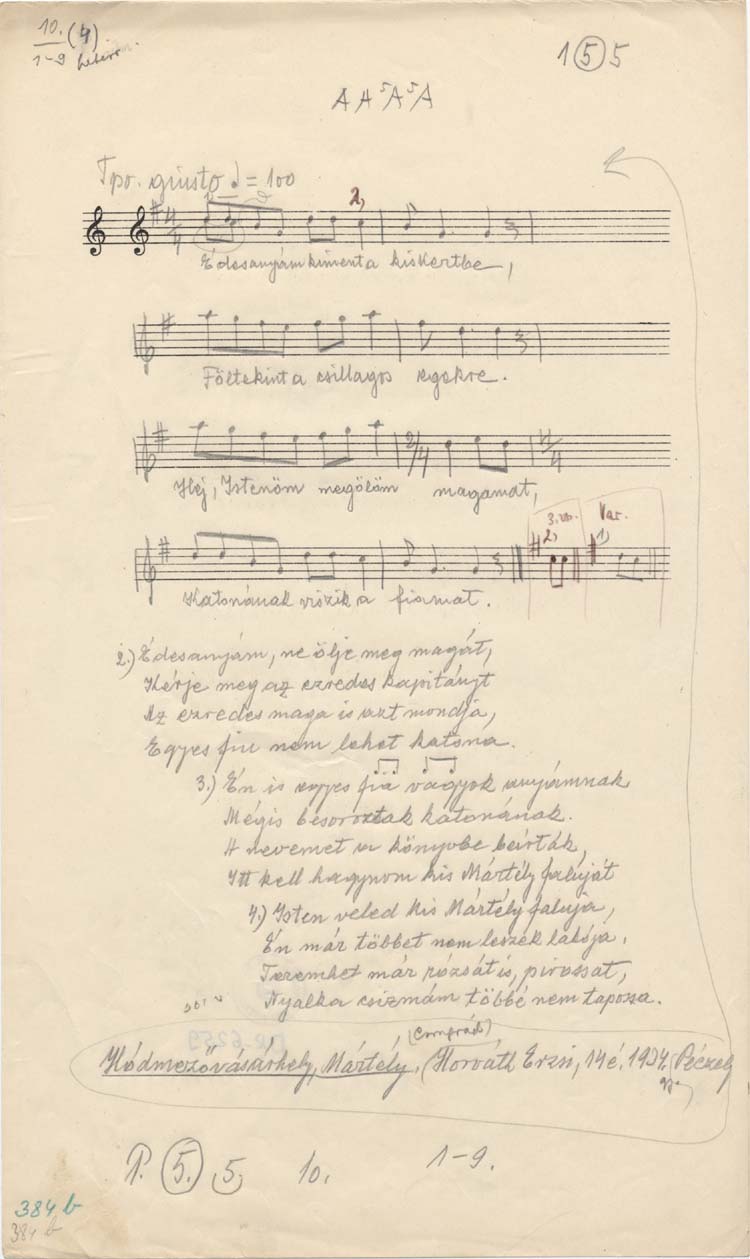 10. (4)
1-9
1 5 5
A A⁵ A⁵ A
Tpo. giusto ♩= 100
2,
4/4
Édesanyám kiment a kiskertbe,
Föltekint a csillagos egekre.
2/4 4/4
Hej, Istenöm megölöm magamat,
3. vsz. Var.
2, 1,
Katonának viszik a fiamat.
2.) Édesanyám, ne ölje meg magát,
Kérje meg az ezredes kapitányt
Az ezredes maga is azt mondja,
Egyes fiu nem lehet katona.
3.) Én is egyes fia vagyok anyámnak
Mégis besoroztak katonának.
A nevemet a könyvbe beirták,
Itt kell hagynom kis Mártély faluját
4.) Isten veled kis Mártély faluja,
Én már többet nem leszek lakója.
Teremhet már rózsát is, pirossat,
Nyalka csizmám többé nem tapossa.
(Csongrád)
Hódmezővásárhely, Mártély. (Horváth Erzsi, 14 é. 1934. Péczely
P. 5. 5. 10. 1-9.
384 b
384 b